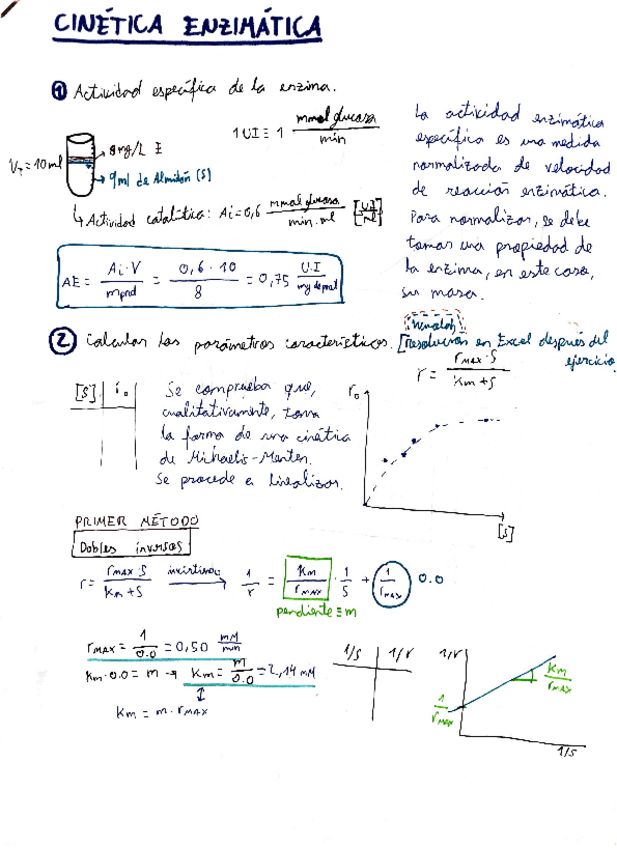 CINÉTICA ENZIMÁTICA
① Actividad específica de la enzima.
1 UI ≡ 1 mmol glucosa / min
V_T = 10 ml
8 mg/L E
9 ml de Almidón (S)
↳ Actividad catalítica: Ai = 0,6 mmol glucosa / min·ml [UI/ml]
AE = Ai·V / m_prod = 0,6·10 / 8 = 0,75 U.I / mg de prot
La actividad enzimática
específica es una medida
normalizada de velocidad
de reacción enzimática.
Para normalizar, se debe
tomar una propiedad de
la enzima, en este caso,
su masa.
② Calcular los parámetros característicos. [Resolución en Excel después del
ejercicio.
r = r_MAX·S / K_M + S
[S] | r_0
Se comprueba que,
cualitativamente, toma
la forma de una cinética
de Michaelis-Menten.
Se procede a linealizar.
r_0
[S]
PRIMER MÉTODO
Dobles inversos
r = r_MAX·S / K_M + S → 1/r = K_M/r_MAX · 1/S + 1/r_MAX O.O
pendiente ≡ m
r_MAX = 1/O.O = 0,50 mM/min
K_M·O.O = m → K_M = m/O.O = 2,14 mM
K_M = m·r_MAX
1/S | 1/r
1/r
K_M/r_MAX
1/r_MAX
1/S